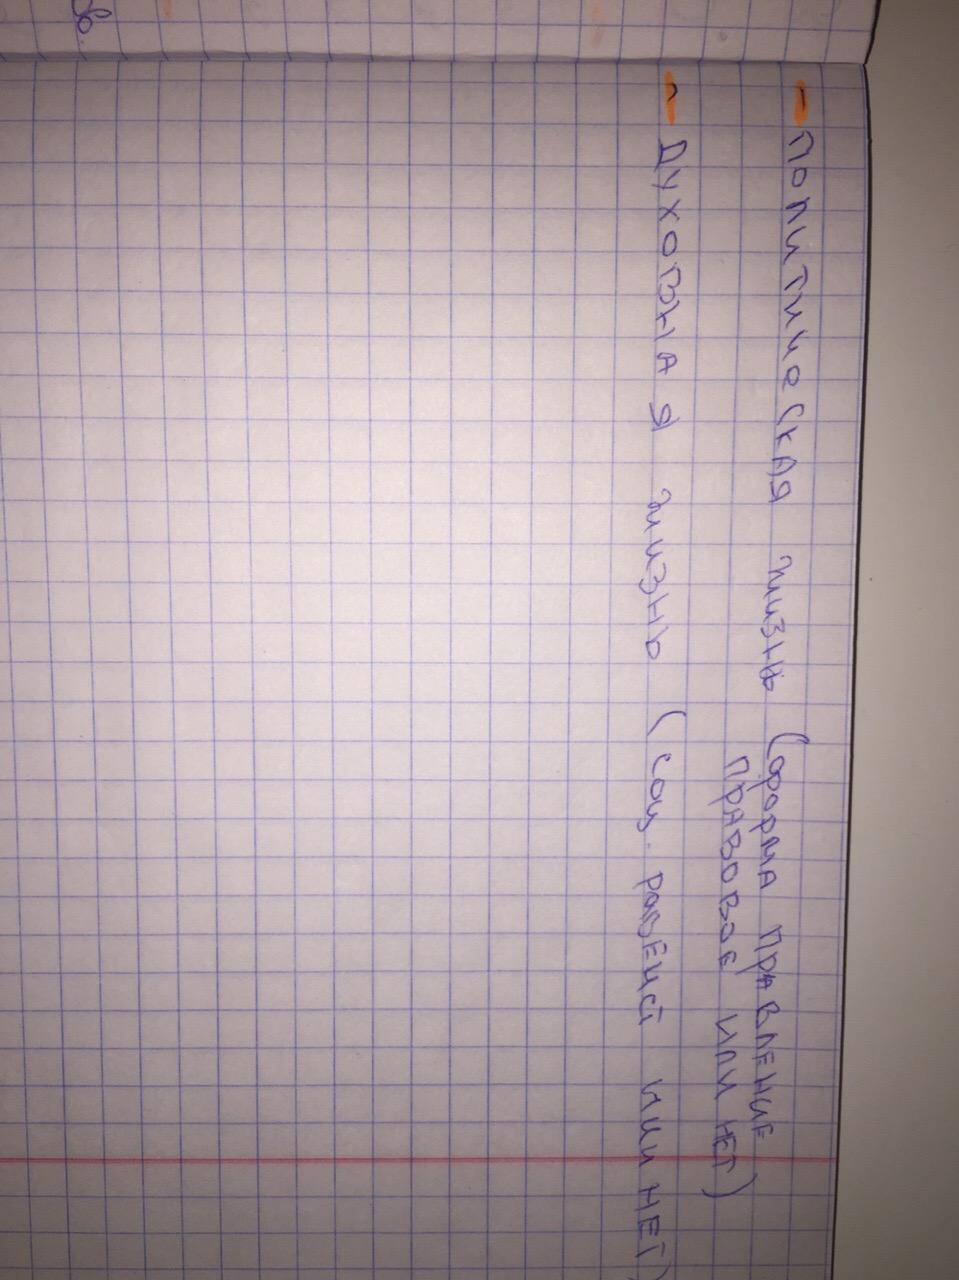 - ПОЛИТИЧЕСКАЯ ЖИЗНЬ (ФОРМА ПРАВЛЕНИЕ
ПРАВОВОЕ ИЛИ НЕТ)
- ДУХОВНАЯ ЖИЗНЬ (соц. равенст или НЕТ)
ов.